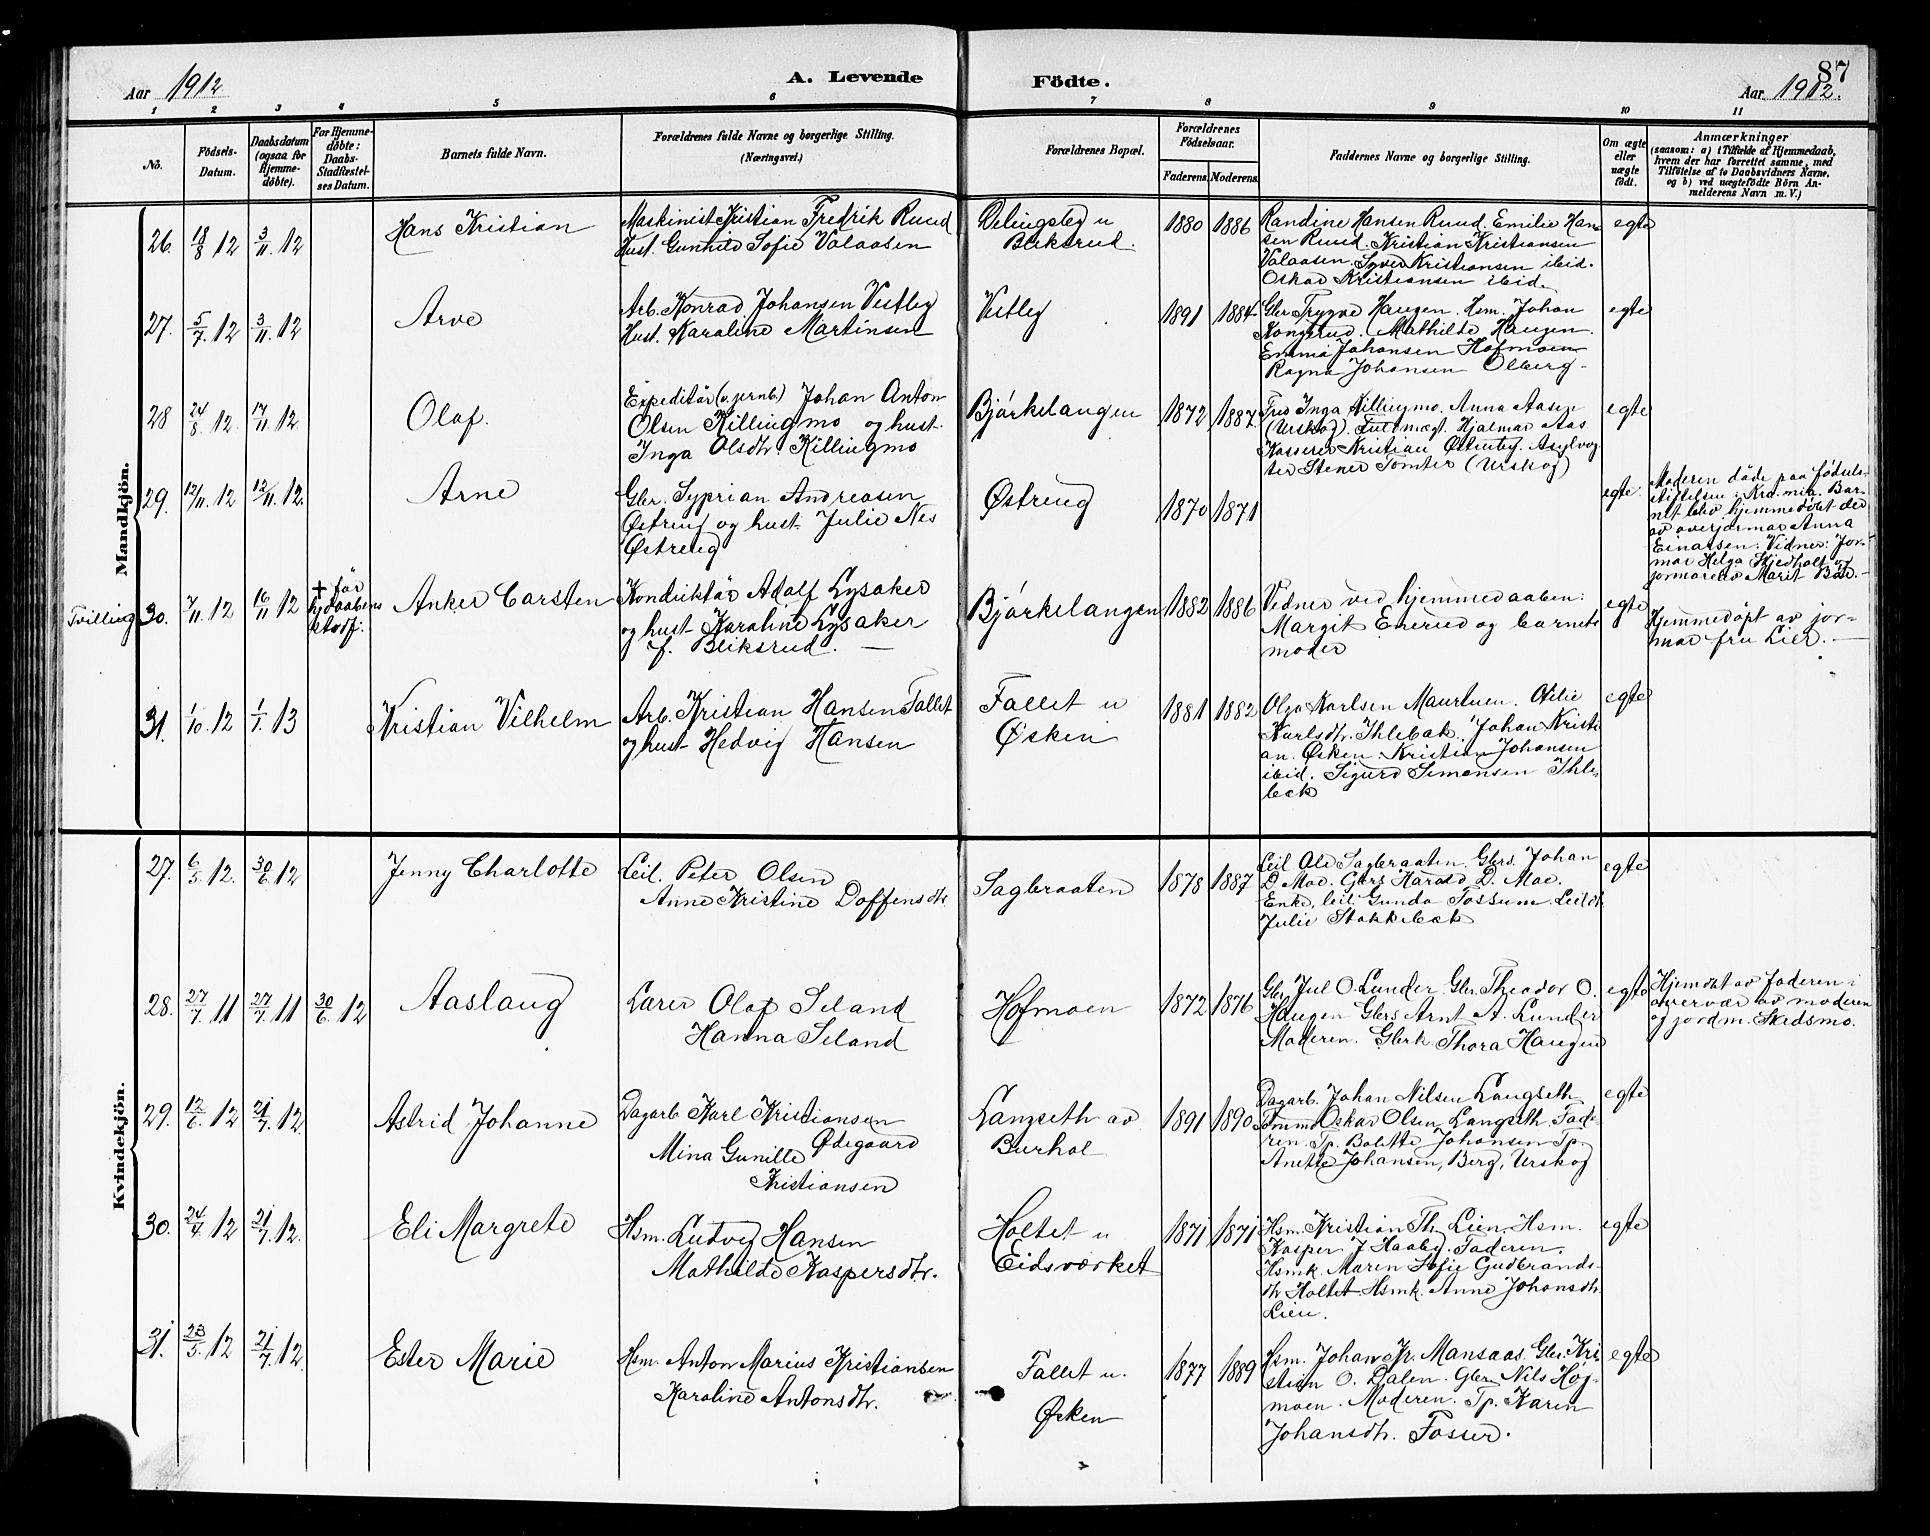 87
Aar 1912
A. Levende Födte.
Aar 1912.
1 2 3 4 5 6 7 8 9 10 11
No.
Födsels-
Datum.
Daabsdatum
(ogsaa for
Hjemme-
döbte).
For Hjemme-
döbte:
Daabs-
Stadfæstel-
ses Datum.
Barnets fulde Navn.
Forældrenes fulde Navne og borgerlige Stilling.
(Næringsvei.)
Forældrenes Bopæl.
Forældrenes
Födselsaar.
Faderens. Moderens.
Faddernes Navne og borgerlige Stilling.
Om ægte
eller
uægte
födt.
Anmærkninger
(saasom: a) i Tilfælde af Hjemmedaab,
hvem der har forrettet samme, med
Tilföielse af to Daabsvidners Navne,
og b) ved uægtefödte Börn An-
melderens Navn m. V.)
Mandkjön.
26. 18/8 12 3/11. 12
Hans Kristian
Maskinist Kristian Fredrik Ruud
Hust. Gunhild Sofie Valaasen
Delingsby u
Bliksrud.
1880 1886
Randine Hansen Ruud. Emilie Han-
sen Ruud. Kristian Kristiansen
Valaasen. Syver Kristiansen ibid.
Oskar Kristiansen ibid.
egte
27. 5/7. 12 3/11. 12
Arve
Arb. Konrad Johansen Vestby
Hust. Karoline Martinsen
Vestby
1891 1884
Gbr Trygve Haugen. Hsm. Johan
Kongsrud. Mathilde Haugen.
Emma Johansen Hofmoen
Ragna Johansen Olberg.
egte
28 24/8. 12. 17/11. 12
Olaf.
Expeditör (v. jernb.) Johan Anton
Olsen Killingmo og hust.
Inga Olsdtr. Killingmo
Bjørkelangen
1872 1887.
Fru Inga Killingmo. Anna Aasen
(Urskog). Fuldmægt. Hjalmar Aas
Kasserer Kristian Østenby.
Stener Tomter (Urskog)
egte
29. 12/11. 12 12/11. 12.
Arne
Gbr. Syprian Andreasen
Østreng og hust. Julie Nes
Østreng
Østreng
1870 1871
egte.
Moderen døde paa fødsels-
stiftelsen i Kra.nia. Bar-
net blev hjemmedøbt der
av overjormor Anna
Einarsen. Vidner: Jor-
mor Helga Skjedholt og
jormorelev Marit Bøe.
Tvilling 30. 7/11. 12 16/11 12
+ før
hjdaabens
stadf.
Anker Carsten
Konduktør Adolf Lysaker
og hust. Karoline Lysaker
f. Bliksrud.
Bjørkelangen
1882 1886
Vidner ved hjemmedaaben:
Margit Enerud og barnets
moder
egte
Hjemmedøpt av jor-
mor fru Lier.
31. 1/10. 12 1/1. 13
Kristian Vilhelm
Arb. Kristian Hansen Fallet
og hust. Hedvig Hansen
Fallet u
Øsken
1881 1882
Olga Karlsen Maurtuen. Ofilie
Karlsdtr. Ihlebæk. Johan Kristi-
an. Øsken. Kristian Johansen
ibid. Sigurd Simensen Ihle-
bæk
egte
Kvindekjön.
27. 6/5. 12. 30/6. 12
Jenny Charlotte
Leil. Peter Olsen
Anne Kristine Doffensdtr.
Sagbraaten
1878 1887
Leil Ole Sagbraaten. Gbrs. Johan
D. Moe. Gbrs Harald D. Moe.
Enke, leil Gunda Fossum. Leildt.
Julie Stokkebæk
egte
28. 27/7. 11 27/7. 11 30/6. 12
Aaslaug
Lærer Olaf Seland
Hanna Seland
Hofmoen
1872 1876
Gbr. Jul O. Lunder. Gbr. Theodor O.
Haugen Gbrs Arnt A. Lunder
Moderen. Gbrk. Thora Haugen
egte
Hjemdøbt av faderen i
overvær av moderen
og jordm. Skedsmo.
29. 12/6. 12 21/7. 12.
Astrid Johanne
Dagarb Karl Kristiansen
Ødegaard
Mina Gunille
Kristiansen
Langseth av
Burhol
1891 1890
Dagarb. Johan Nilsen Langseth
Tømmr Oskar Olsen Langseth. Fade-
ren. Tp. Bolette Johansen Tp.
Anette Johansen, Berg, Urskog
egte
30. 24/4. 12 21/7. 12.
Eli Margrete
Hsm. Ludvig Hansen
Mathilde Kaspersdtr.
Holtet u
Eidsverket
1871 1871
Hsm. Kristian Th. Lien. Hsm.
Kasper J Haaby. Faderen.
Hsmk. Maren Sofie Gudbrands-
dtr Holtet. Hsmk. Anne Johansdtr
Lien.
egte
31. 23/5. 12 21/7. 12.
Ester Marie
Hsm. Anton Marius Kristiansen
Karoline Antonsdtr.
Fallet u.
Øsken
1877 1889
Hsm. Johan Kr. Mansaas. Gbr. Kri-
stian O. Dalen. Gbr. Nils Høj-
moen. Moderen. Tp. Karen
Johansdtr. Fosser.
egte